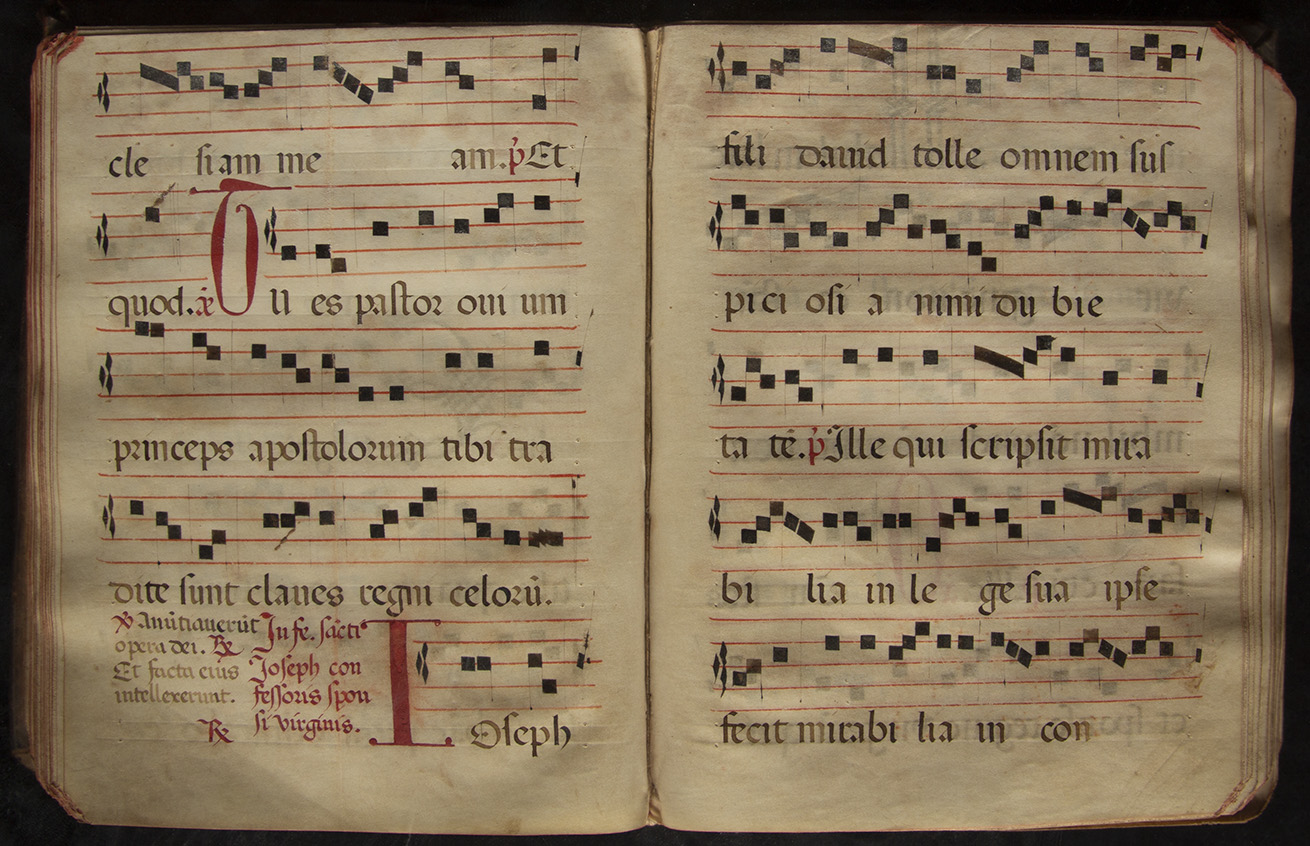 cle siam me am. p̃ Et
quod. ẜ TU es pastor oui um
princeps apostolorum tibi tra
dite sunt claues regni celorũ.
℣ Anũtiauerũt
opera dei. ℟
Et facta eius
intellexerunt.
℟
In fe. sãcti
Joseph con
fessoris spon
si virginis.
IOseph
fili dauid tolle omnem sus
pici osi a nimi du bie
ta tẽ. p̃ Ille qui scripsit mira
bi lia in le ge sua ipse
fecit mirabi lia in con